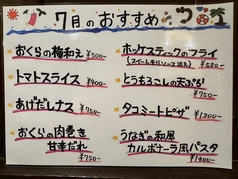 7月のおすすめ
おくらの梅和え ¥500-
トマトスライス ¥400-
あげだしナス ¥750-
おくらの肉巻き
甘辛だれ ¥750-
ホッケスティックのフライ
(スイートチリソース添え) ¥580-
とうもろこしの天ぷら ¥750-
タコミートピザ ¥1200-
うなぎの和風
カルボナーラ風パスタ
¥1400-